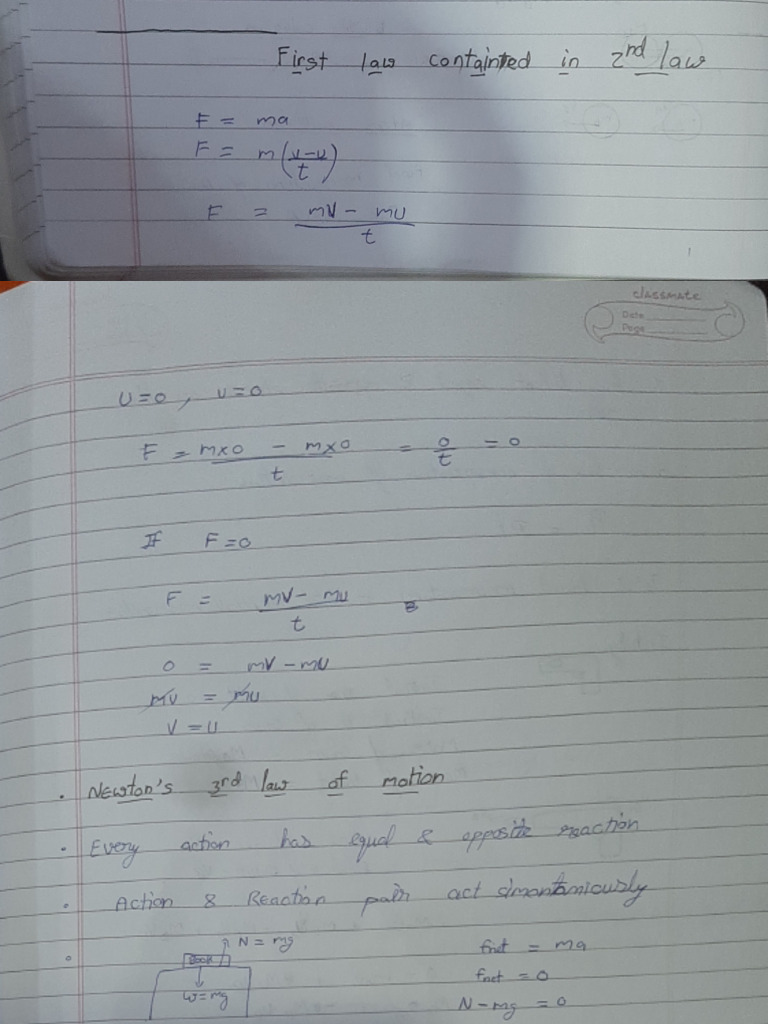 First law containted in 2nd law
F = ma
F = m(v-u/t)
F = mv - mu / t
classmate
Date
Page
U=0, v=0
F = m×0 - m×0 / t = 0/t = 0
If F=0
F = mv - mu / t
0 = mv - mu
mv = mu
V = u
• Newton's 3rd law of motion
• Every action has equal & opposite reaction
• Action & Reaction pair act simontaniously
N = mg
Book
W=mg
fnet = ma
fnet = 0
N-mg = 0